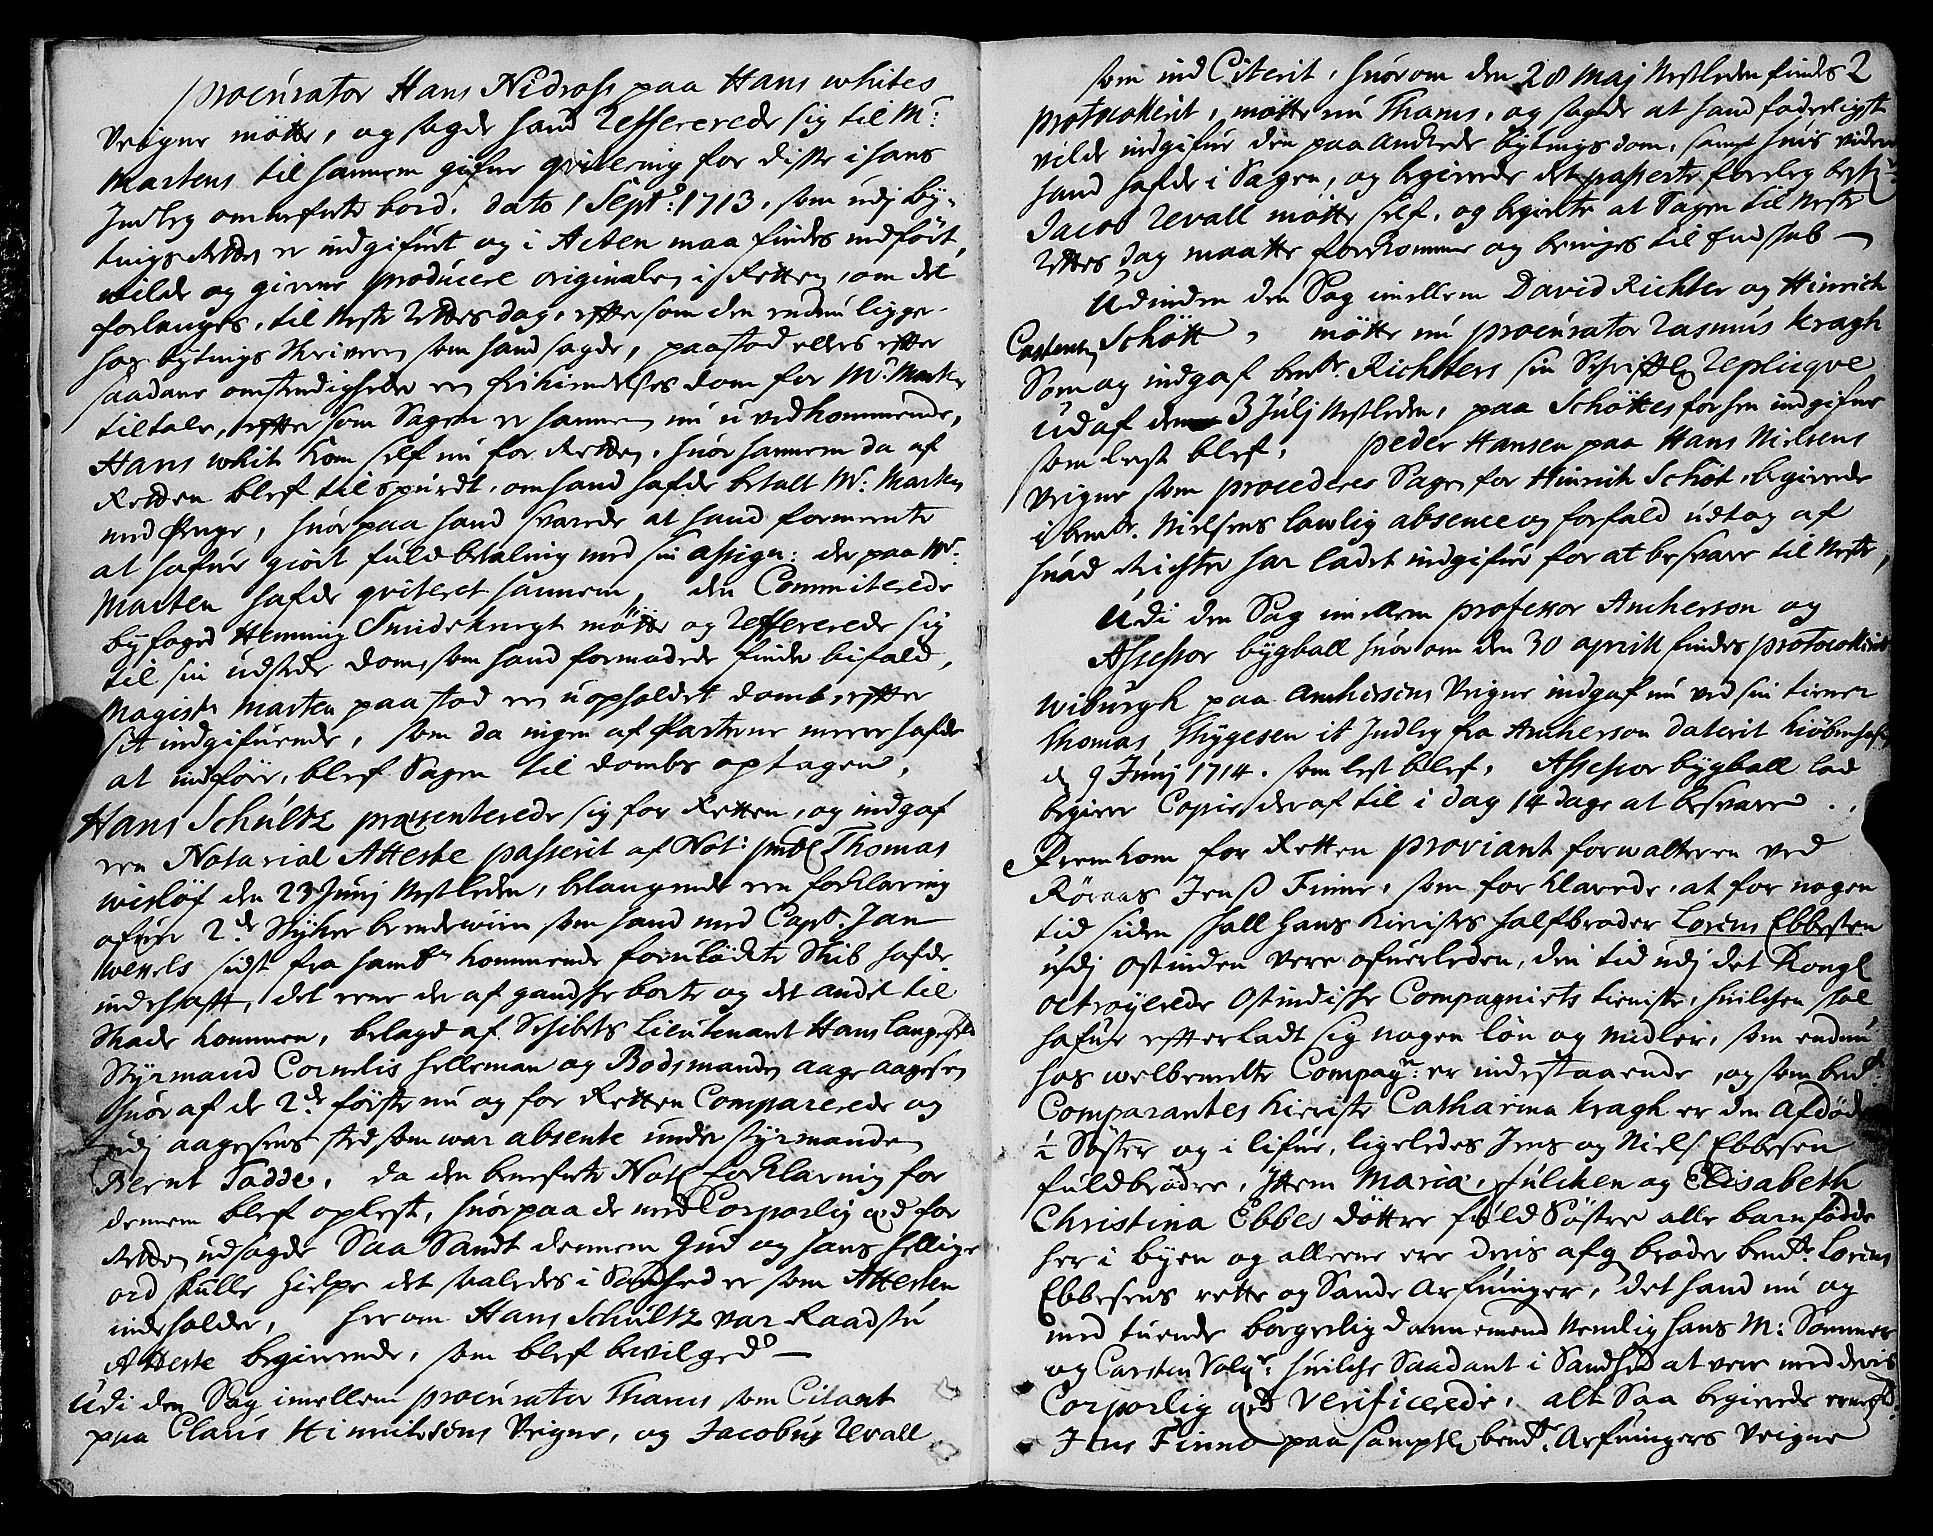 procurator Hans Nidross paa Hans whites
Veigne mötte, og sagde hand Refferrerede sig til Mr:
Martens til hannem gifne qvitering for disse i hans
Indleg ommelte bord. dato 1 Sept: 1713. som udj by-
tings Retten er indgifuet og i Acten maa findes indfört,
wilde og gierne producere originalen i Retten, om det
forlanges, til Neste Rettes dag, efftersom den endnu ligger
hos bytings skriveren som hand sagde, paastod ellers efter
saadane omstendigheder en frikiendelses dom for Mr. Marten
tiltale, efftersom Sagen er hannem nu u vedkommende,
Hans whit kom self nu for Retten, huor hannem da af
Retten blef tilspurdt, om hand hafde betalt Mr. Marten
med Penge, huor paa hand svarede at hand formeente
at hafue giort fuld betaling med sin assign: der paa Mr.
Marten hafde qviteret hannem, den Committerede
byfoged Hemming Smidtknegt mötte og Refferrerede sig
til sin udstede dom, som hand formodede finder bifald,
Magister Marten paastod en uopholdet domb, effter
sit indgifuende, som da ingen af Parterne meere hafde
at indföre, blef Sagen til dombs optagen,
Hans Schultz præsenterede sig for Retten, og indgaf
een Notarial Atteste passerit af Not: publ. Thomas
wislöf den 23 Junj Nestleden, belangende een forklaring
ofuer 2de Stycker brendeviin som hand med Capt. Jan
wessels sidst fra Hamb. kommende forulödte Skib hafde
indehaft, det eene der af gandske borte og det andet til
Skade kommen, belagd af Schibets Lieutenant Hans Langefeldt
Styrmand Cornelis Helleman og Bodsmanden Aage Aagesen
huor af de 2de förste nu og for Retten Comparerede og
udj Aagesens sted som war absente under styrmanden
Bernt Tadde, da den benefente Notl forklaring for
dennem blef oplest, huor paa de med Corporlig eed for
Retten udsagde Saa Sandt dennem Gud og hans hellige
ord skulle hielpe det saaledes i Sandhed er som Attesten
indeholder, her om Hans Schultz var Raadstu
Atteste begierende, som blef bevilged
Udi den Sag imellem procurator Thams som Citant
paa Claus Hinrichsens Veigne, og Jacobus Revall
som ind Citerit, huor om den 28 Maj Nestleden findes 2
protocollerit, mötte nu Thams, og sagde at hand foderligst
vilde indgifue den paa Ankede bytings dom, samt huis videre
hand hafde i Sagen, og begierede det passerte foreleg beskr.
Jacob Revall mötte self, og begierte at Sagen til Neste
Rettes dag maatte forekomme og bringes til Endskab
Udinden den Sag imellem David Richter og Hinrich
Carstensen Schött, mötte nu procurator Rasmus Kragh
Som og indgaf bente. Richters sin Schrifftl. Replicqve
udaf den 3 Julj Nestleden, paa Schöttes forhen indgifne
som lest blef, Peder Hansen paa Hans Nielsens
Veigne som procederer Sagen for Hinrich Schöt, begierede
i bente. Nielsens lowlig absence og forfald udtog af
huad Richter har ladet indgifue for at besvare til Neste,
Udi den Sag imellem professor Ancherson og
Assessor bygball huor om den 30 aprill findes protocollerit
wiburgh paa Anchersens Veigne indgaf nu ved sin tiener
Thomas Thygesen it Indleg fra Ancherson daterit Kiöbenhafn
d. 9 Junj 1714. som lest blef, Assessor bygball lod
begiere Copie der af til i dag 14 dage at besvare.
Fremkom for Retten proviant forwalteren ved
Röraas Jens Finne, som forklarede, at for nogen
tid siden skall hans Kieristes halfbroder Lorens Ebbesen
udj ostinden vere ofuerleden, den tid udj det Kongl.
octroyerede Ostindiske Compagniets tieniste, huilchen skal
hafue effterladt sig nogen lön og Midler, som endnu
hos welbemelte Compagn: er indestaaende, og som bente.
Comparantes Kieriste Catharina Kragh er den Afdödes
1/2 Söster og i lifue, ligeledes Jens og Niels Ebbesen
fuldbrödre, Item Maria, Hulchen og Elisabeth
Christina Ebbes döttre fuld Söstre alle barnfödde
her i byen og alleene ere deris afg. broder bente. Lorens
Ebbesens rette og Sande Arfuinger, det hand nu og
med tuende borgerlig dannemend Nemlig Hans M: Sommer
og Carsten Volq: huilche Saadant i Sandhed at vere med deris
Corporlig eed Verificerede, alt Saa begierede
Jens Finne paa sampt. bente. Arfuingers Veigne